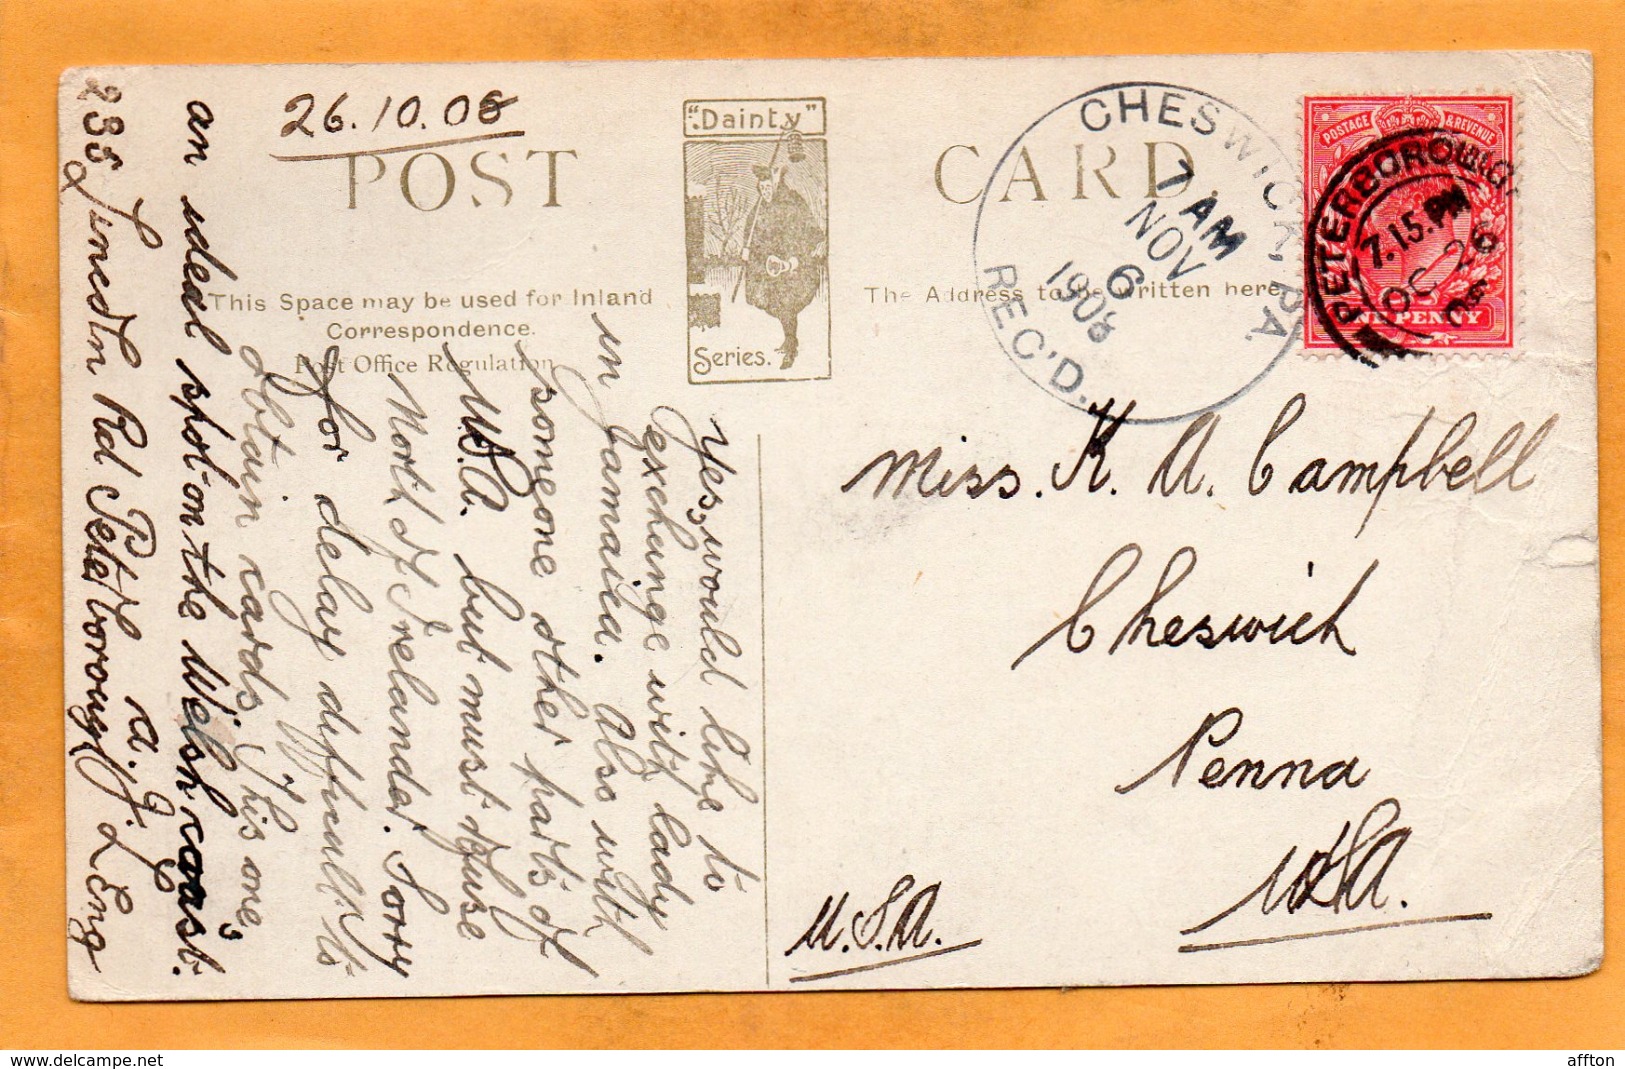 26.10.08
POST
CARD
"Dainty"
Series.
This Space may be used for Inland
Correspondence.
Post Office Regulation
The Address to be written here
CHESWICK, PA.
7 AM
NOV
6
1908
REC'D.
POSTAGE & REVENUE
ONE PENNY
PETERBOROUGH
7.15.PM
OC 26
08
Yes, would like to
exchange with lady
in Jamaica. Also with
someone other parts of
U.S.A. but must refuse
North of Irelander. Sorry
for delay difficult to
obtain cards. This one's
an ideal spot on the Welsh coast.
R. J. Leng
Lincoln Rd Peterborough
Miss. K. A. Campbell
Cheswick
Penna
U.S.A.
U.S.A.
delcampe.net
affton